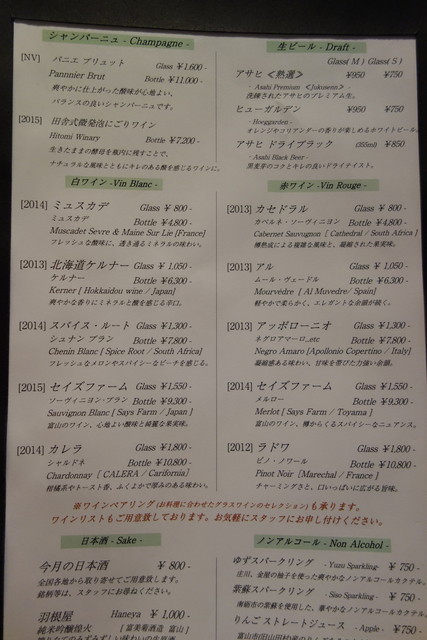 シャンパーニュ - Champagne -
[NV] パニエ ブリュット Glass ¥1.600 -
Pannnier Brut Bottle ¥11.000 -
爽やかに仕上がった酸味が心地よい、
バランスの良いシャンパーニュです。
[2015] 田舎式微発泡にごりワイン
Hitomi Winary Bottle ¥7.200 -
生きたままの酵母を瓶内に残すことで、
ナチュラルな風味とともにキレのある酸を感じるワインに。
生ビール - Draft -
Glass( M ) Glass( S )
アサヒ ≪熟選≫ ¥950 ¥750
- Asahi Premium ≪Jukusenn≫ -
洗練されたアサヒのプレミアム生。
ヒューガルデン ¥950 ¥750
- Hoeggarden -
オレンジやコリアンダーの香りが楽しめるホワイトビール。
アサヒ ドライブラック (355ml) ¥850
- Asahi Black Beer -
黒麦芽のコクとキレの良いドライテイスト。
白ワイン -Vin Blanc-
[2014] ミュスカデ Glass ¥ 800 -
ミュスカデ Bottle ¥4.800 -
Muscadet Sevre & Maine Sur Lie [France]
フレッシュな酸味に、透き通るミネラルの味わい。
[2013] 北海道ケルナー Glass ¥ 1,050 -
ケルナー Bottle ¥ 6.300 -
Kerner [ Hokkaidou wine / Japan]
爽やかな香りにミネラルと酸を感じる辛口。
[2014] スパイス・ルート Glass ¥1,300 -
シュナン ブラン Bottle ¥7,800 -
Chenin Blanc [ Spice Root / South Africa]
フレッシュなメロンやスパイシーなピーチを感じる。
[2015] セイズファーム Glass ¥1,550 -
ソーヴィニヨン・ブラン Bottle ¥9,300 -
Sauvignon Blanc [ Says Farm / Japan ]
富山のワイン、心地よい酸味と綺麗な果実味。
[2014] カレラ Glass ¥1,800 -
シャルドネ Bottle ¥10,800 -
Chardonnay [ CALERA / Carifornia]
柑橘系やトースト香、ふくよかで厚みのある味わい。
赤ワイン -Vin Rouge-
[2013] カセドラル Glass ¥ 800 -
カベルネ・ソーヴィニヨン Bottle ¥4,800 -
Cabernet Sauvugnon [ Cathedral / South Africa ]
樽熟成による複雑な風味と、凝縮された果実味。
[2013] アル Glass ¥ 1,050 -
ムール・ヴェードル Bottle ¥ 6,300 -
Mourvédre [ Al Muvedre/ Spain]
軽やかで柔らかく、エレガントな余韻が続く。
[2013] アッポローニオ Glass ¥1,300 -
ネグロアマーロ,etc Bottle ¥7,800 -
Negro Amaro [Apollonio Copertino / Italy]
凝縮感ある味わい、甘味を帯びた力強い余韻。
[2014] セイズファーム Glass ¥1,550 -
メルロー Bottle ¥9,300 -
Merlot [ Says Farm / Toyama ]
富山のワイン、樽からくるスパイシーなニュアンス。
[2012] ラドワ Glass ¥1,800 -
ピノ・ノワール Bottle ¥10,800 -
Pinot Noir [Marechal / France ]
チャーミングさと、口いっぱいに広がる旨味。
※ワインペアリング(お料理に合わせたグラスワインのセレクション)も承ります。
ワインリストもご用意致しております。お気軽にスタッフにお申し付けください。
日本酒 - Sake -
今月の日本酒 ¥ 800 -
全国各地から取り寄せてご用意致します。
銘柄等は、スタッフにお尋ねください。
羽根屋 Haneya ¥ 1,000 -
純米吟醸煌火 [ 富美菊酒造 富山 ]
ノンアルコール - Non Alcohol -
ゆずスパークリング - Yuzu Sparkling- ¥ 750 -
庄川、金屋の柚子を使った爽やかなノンアルコールカクテル。
紫蘇スパークリング - Siso Sparkling - ¥ 750 -
南砺市の紫蘇を使用した、華やかなノンアルコールカクテル
りんごストレートジュース - Apple - ¥ 750 -